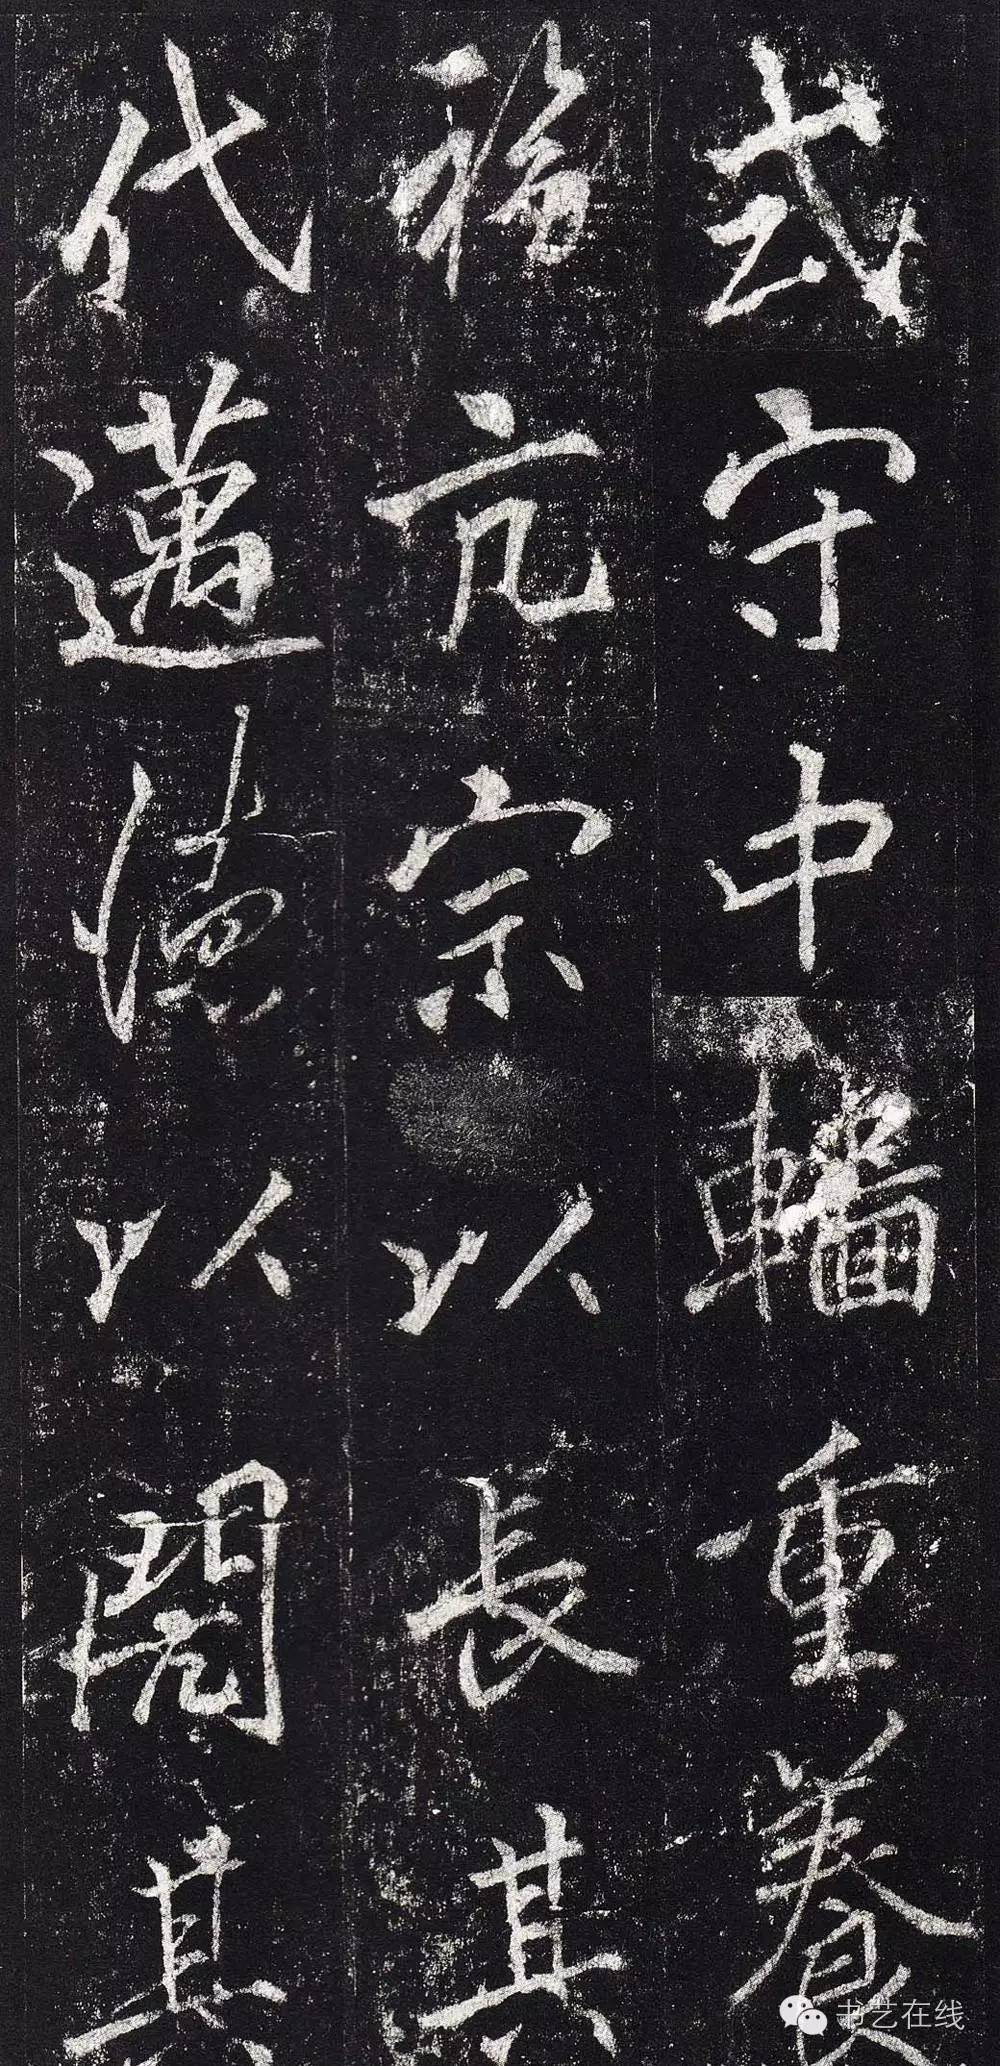 或守中輜重養
福亢宗以長其
代邁德以其
书艺在线